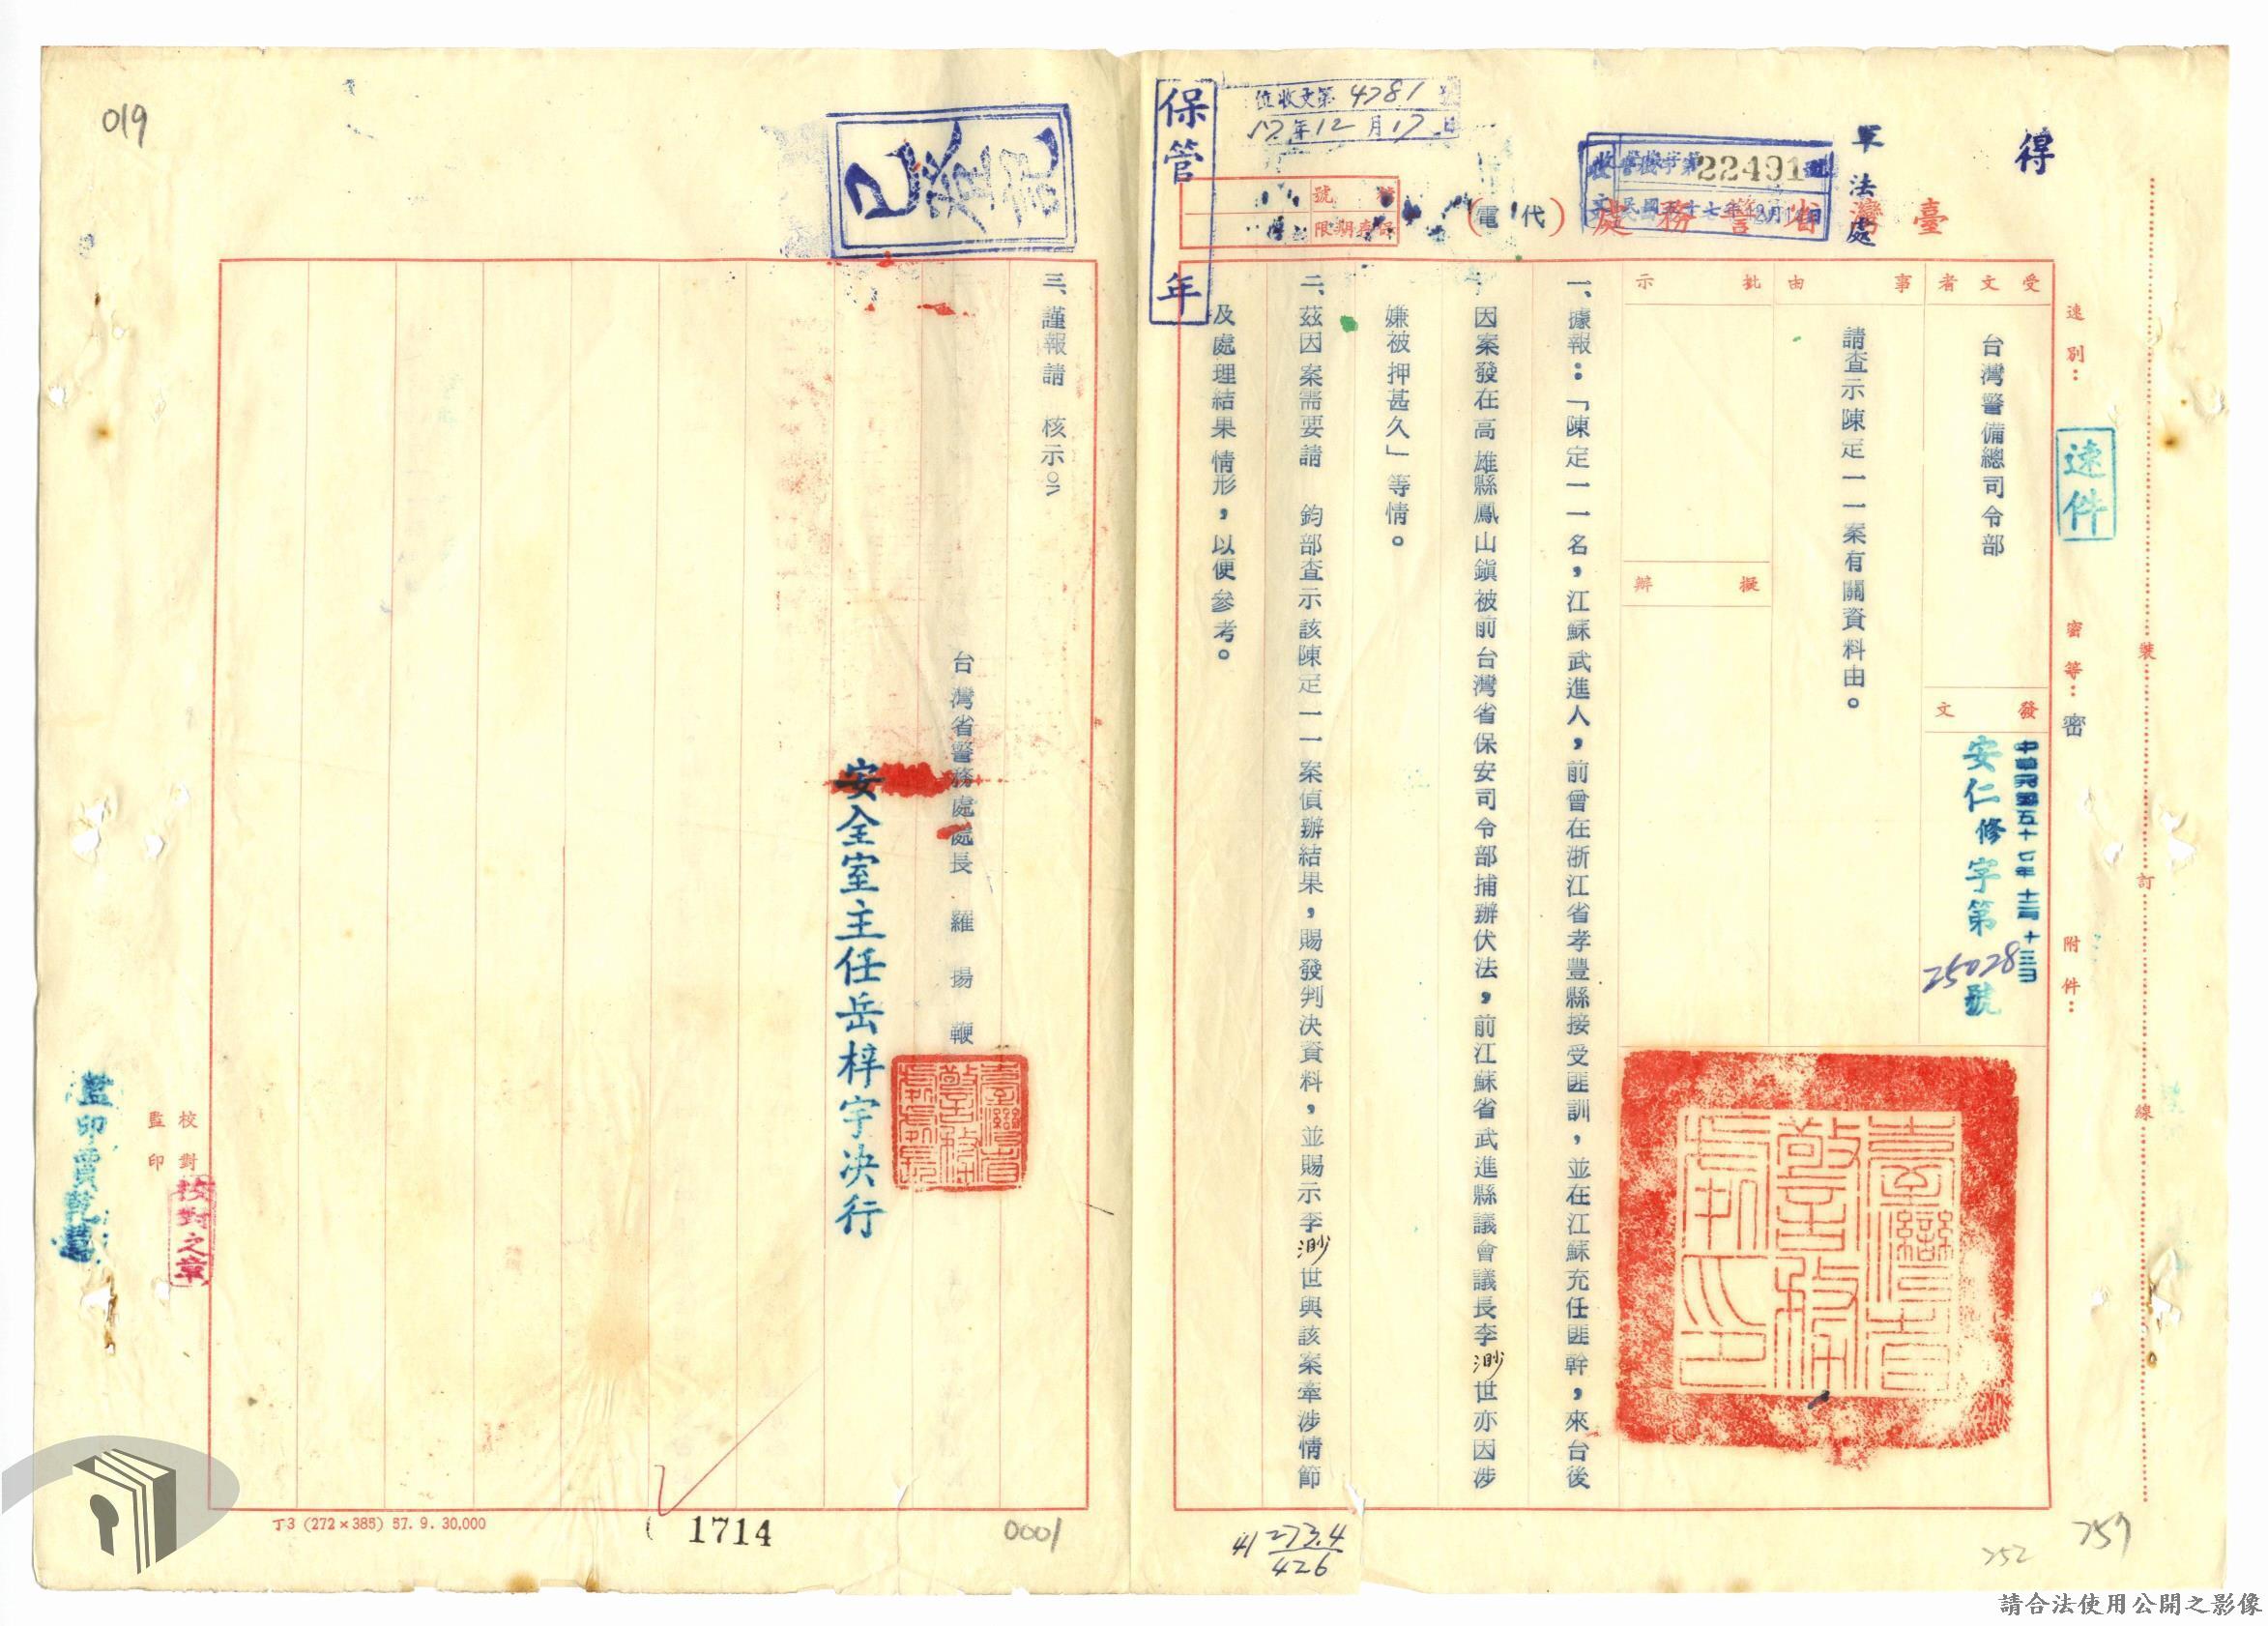 得
軍法處
臺灣省警務處
(代電)
收文
22491號
位收文第4781號
57年12月17日
保管 年
檔號
保存期限
速別：
速件
密等：密
附件：
裝
訂
線
受文者
台灣警備總司令部
發文
中華民國五十七年十二月十三日
安仁修字第25028號
事由
請查示陳定一一案有關資料由。
批示
擬辦
臺灣省警務處印
一、據報：「陳定一一名，江蘇武進人，前曾在浙江省孝豐縣接受匪訓，並在江蘇充任匪幹，來台後
因案發在高雄縣鳳山鎮被前台灣省保安司令部捕辦伏法，前江蘇省武進縣議會議長李渺世亦因涉
嫌被押甚久」等情。
二、茲因案需要請 鈞部查示該陳定一一案偵辦結果，賜發判決資料，並賜示李渺世與該案牽涉情節
及處理結果情形，以便參考。
三、謹報請 核示。
台灣省警務處處長 羅揚鞭
安全室主任岳梓宇決行
校對
校對之章
監印
監印賈乾
019
丁3 (272×385) 57. 9. 30,000
1714
0001
41 273.4
426
252
259
請合法使用公開之影像